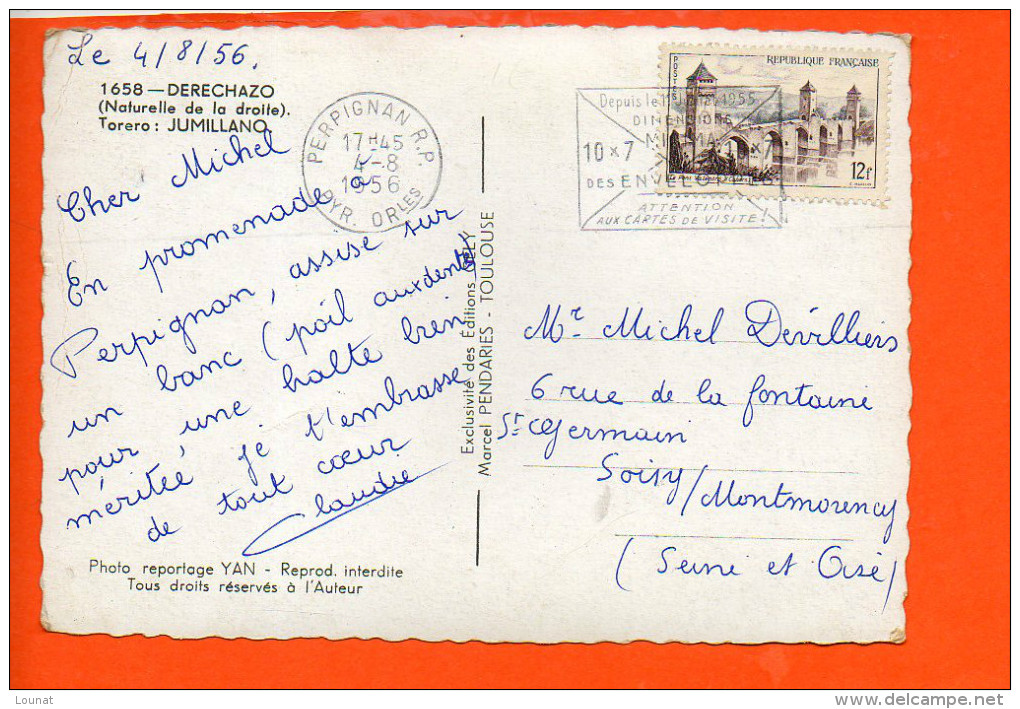 Le 4/8/56.
1658 — DERECHAZO
(Naturelle de la droite).
Torero : JUMILLANO
Cher Michel
En promenade à
Perpignan, assise sur
un banc (poil aux dents)
pour une halte bien
méritée je t'embrasse
de tout cœur
Claudie
Photo reportage YAN - Reprod. interdite
Tous droits réservés à l'Auteur
Exclusivité des Editions GELY
Marcel PENDARIES - TOULOUSE
PERPIGNAN R.P.
17H45
4-8
1956
PYR. ORLES
Depuis le 1 Juillet 1955
DIMENSIONS
MINIMA
10 x 7
DES ENVELOPPES
ATTENTION
AUX CARTES DE VISITE !
POSTES
REPUBLIQUE FRANÇAISE
12f
Mr Michel Devilliers
6 rue de la fontaine
St Germain
Soisy/Montmorency
(Seine et Oise)
Lounat
www.delcampe.net